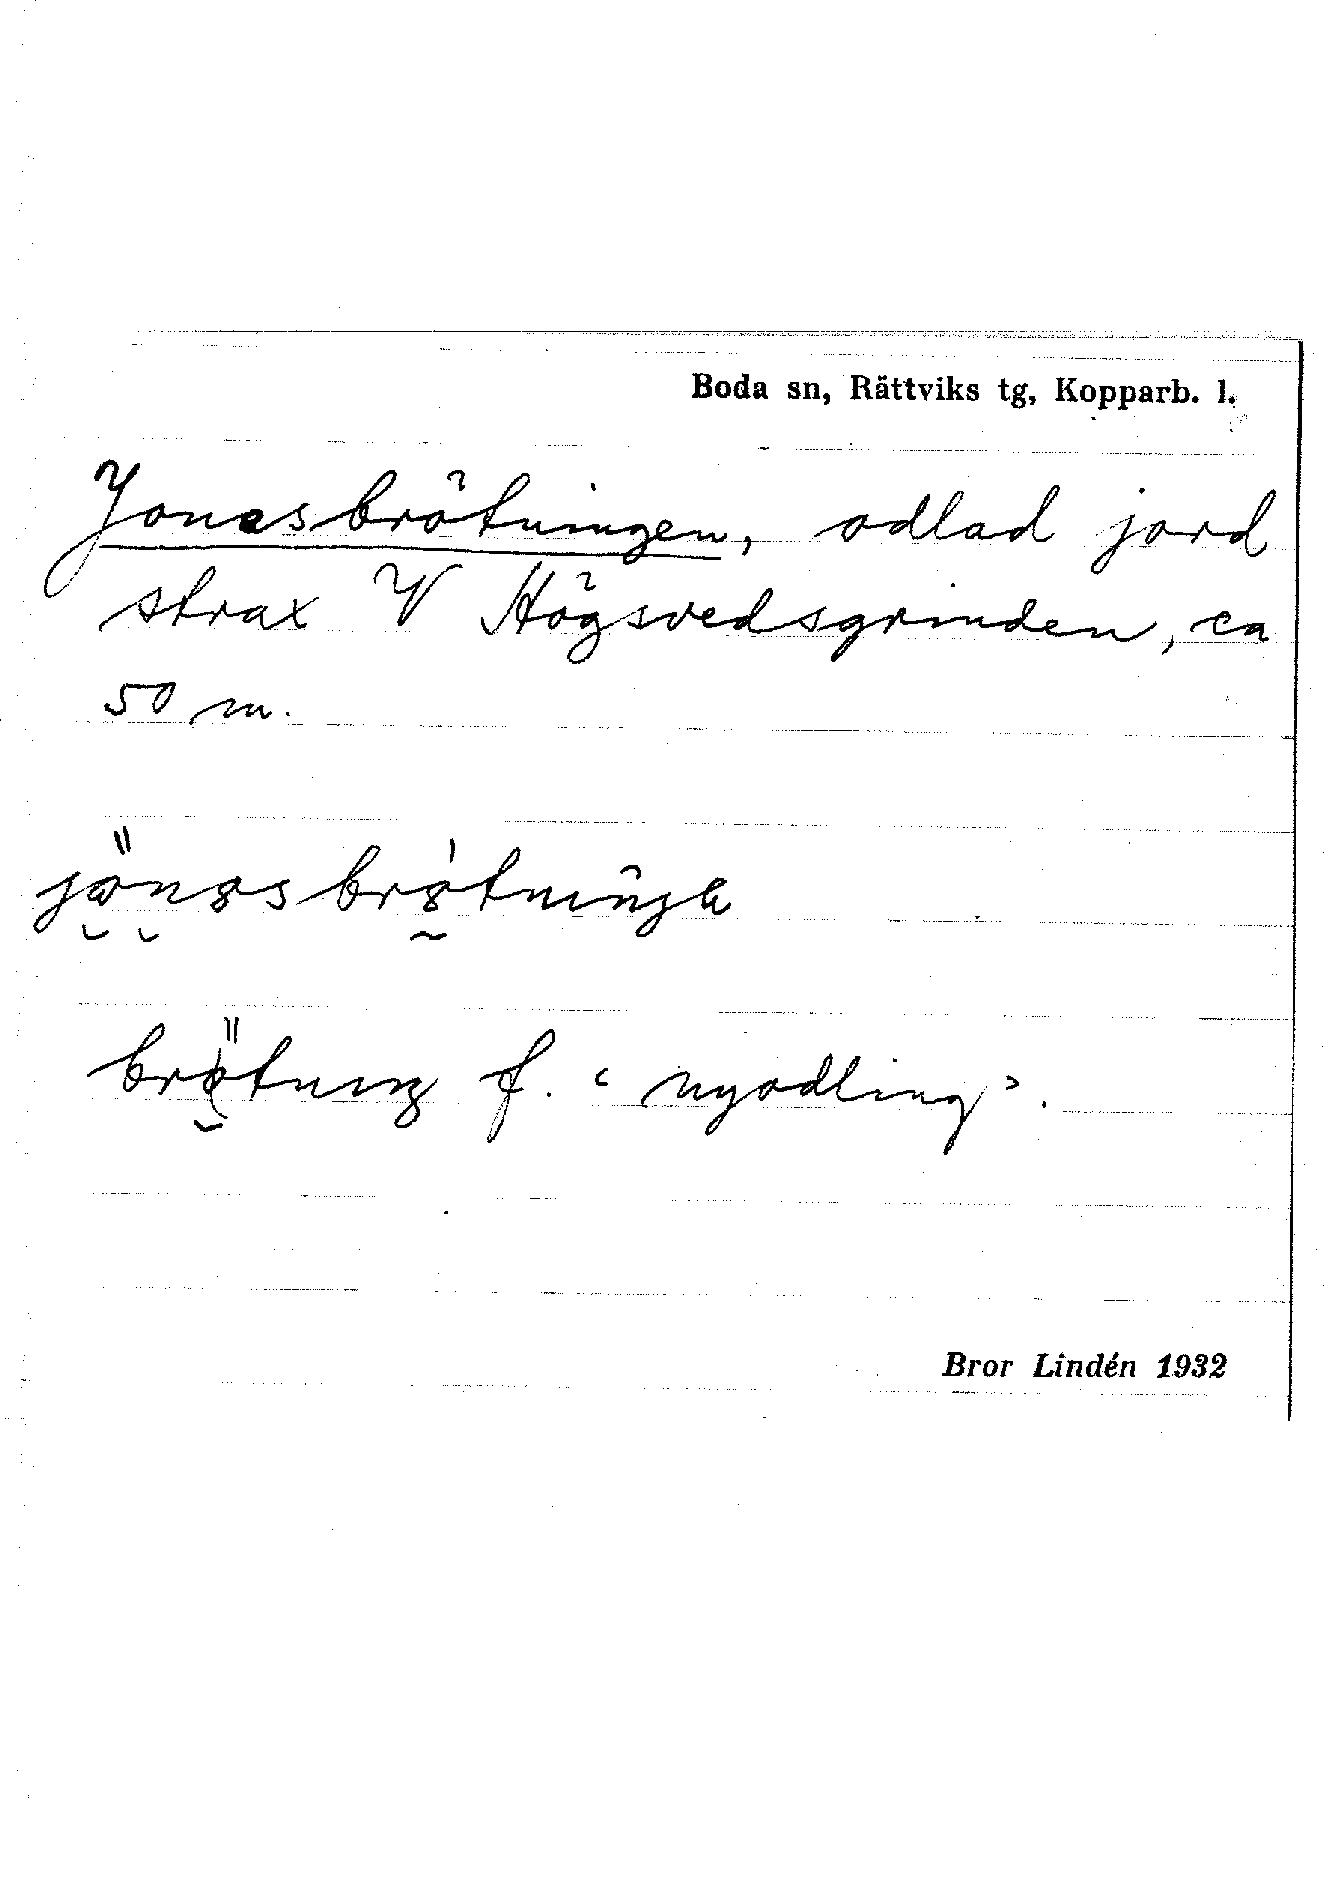 Boda sn, Rättviks tg, Kopparb. l.
Jonasbrötningen, odlad jord
strax V Högsvedsgrinden, ca
50 m.
f. ‘nyodling’.
Bror Lindén 1932